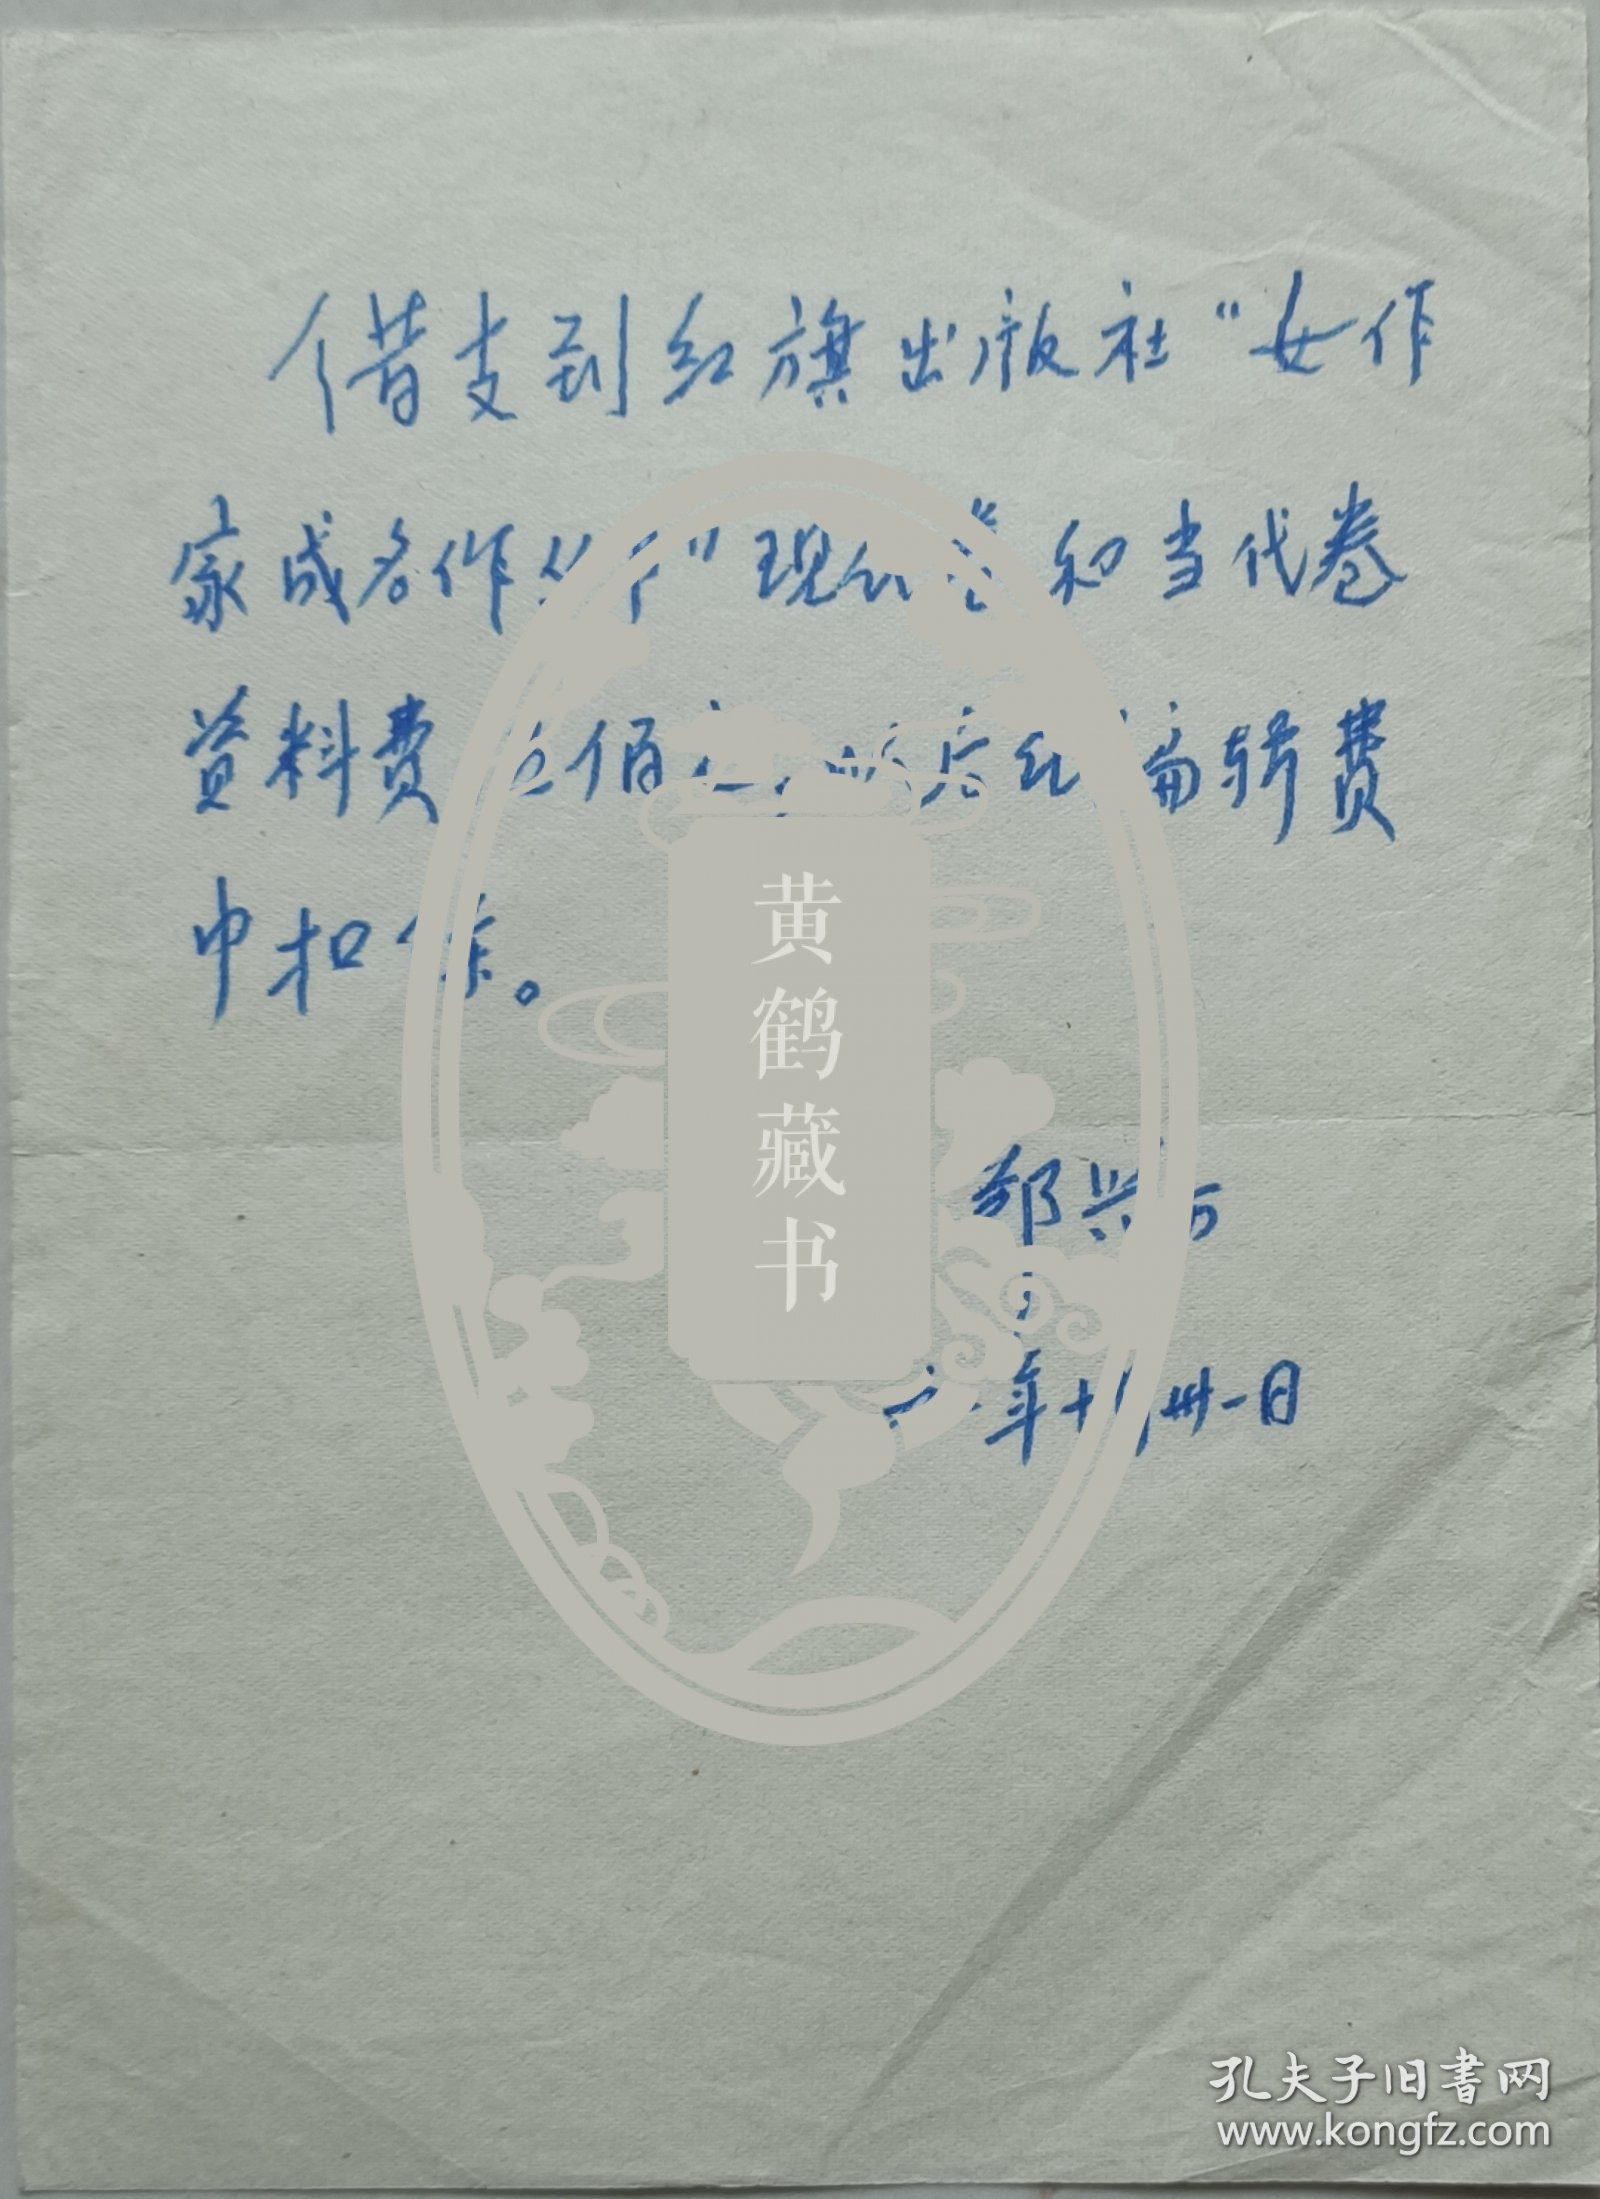 借支到红旗出版社“女作
家成名作 ”现代卷和当代卷
资料费 佰 编辑费
中扣除。
黄鹤藏书
邹兴
年十 卅一日
孔夫子旧书网
www.kongfz.com